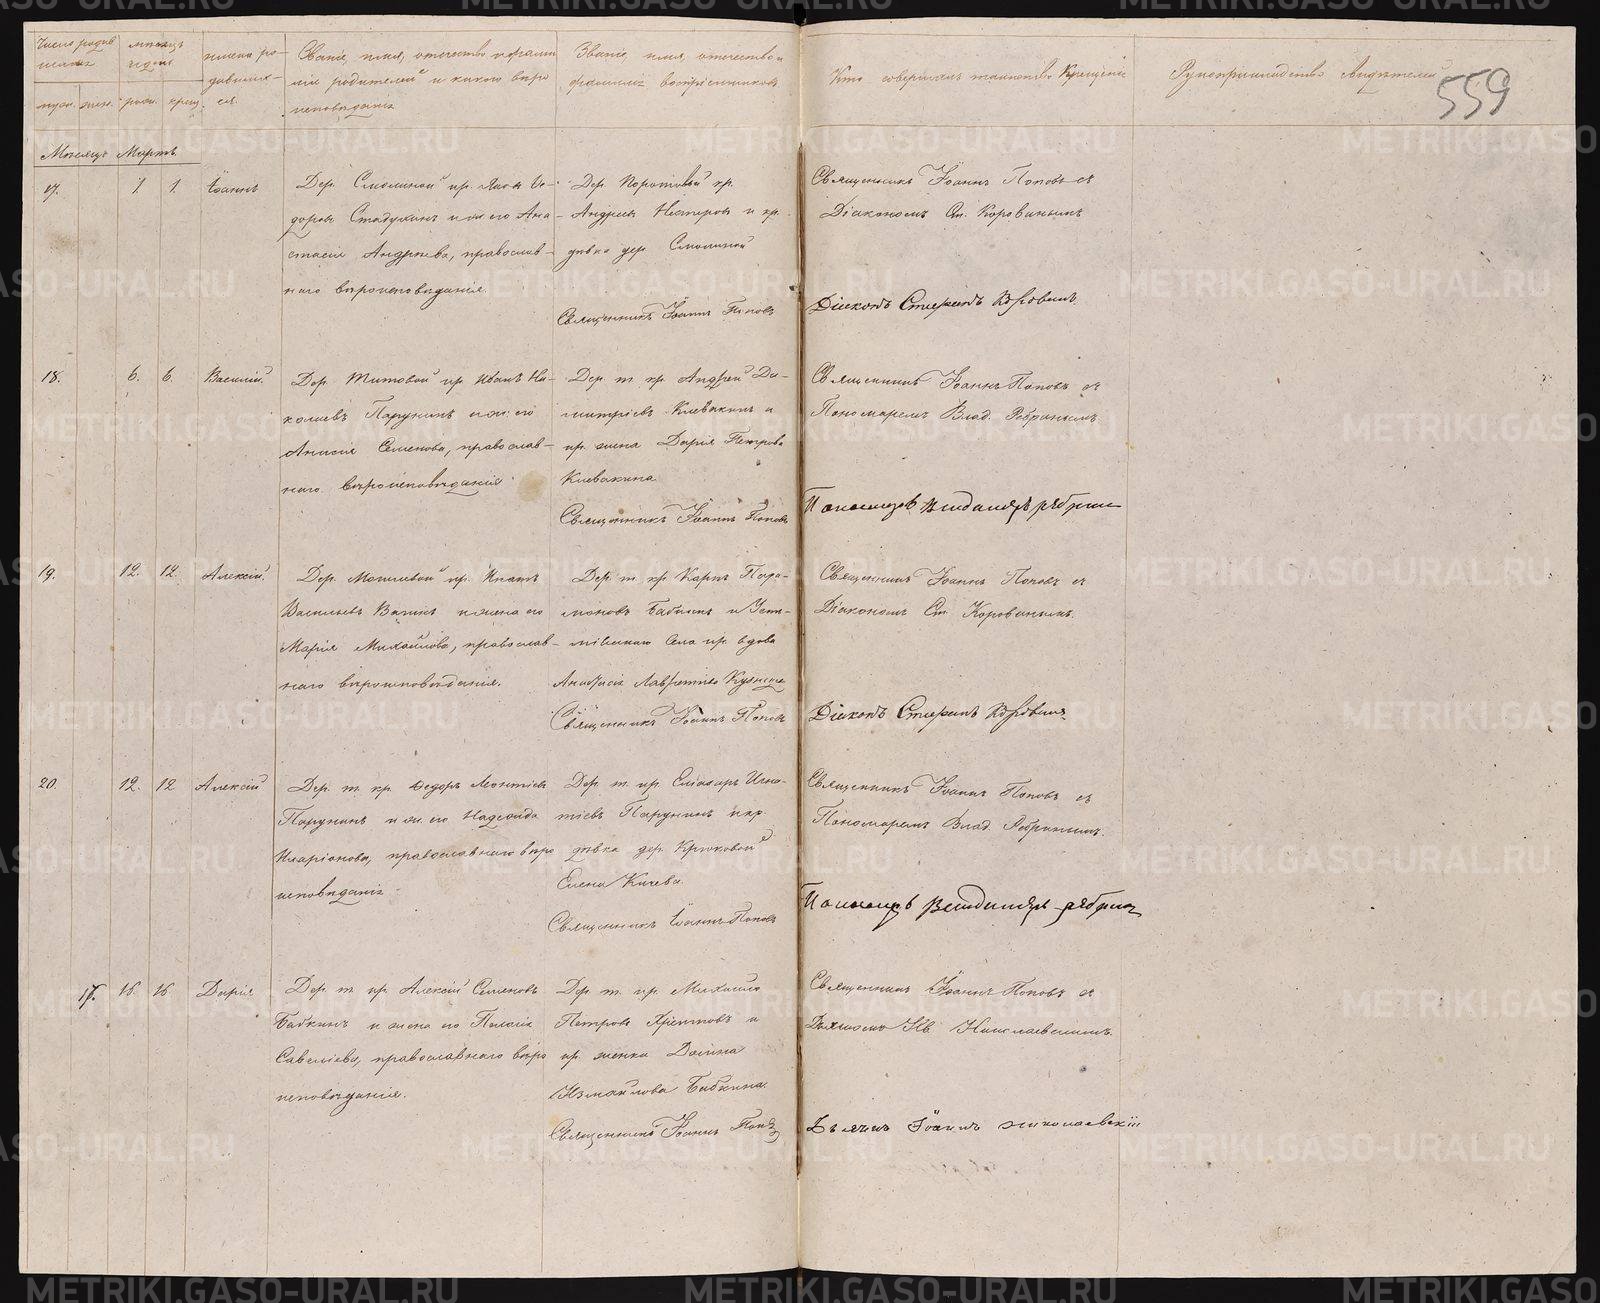 Число родив
шихся
муж. жен.
месяцъ
и день
рожд. крещ.
имена ро-
дивших-
ся.
Званіе, имя, отчество и фами
лія родителей и какого вѣро
исповѣданія
Званіе, имя, отчество и
фамилія воспріемниковъ
Кто совершалъ таинство Крещенія
Рукоприкладство свидѣтелей
559
Мѣсяцъ Мартъ
17. 1 1 Іоаннъ
Дер. Смолиной кр. Яковъ Ѳе-
доровъ Стадухинъ и ж. его Ана-
стасія Андреева, православ-
наго вѣроисповѣданія
Дер. кр.
Андрей Нестеровъ и кр.
дѣвка дер. Смолиной
Священникъ Іоаннъ Поповъ
Священникъ Іоаннъ Поповъ съ
Діакономъ Ст. Коровинымъ
Діаконъ Стефанъ Коровинъ
18. 6. 6. Василій.
Дер. Титовой кр. Иванъ Ни-
колаевъ Парунинъ и ж. его
Анисія Семенова, православ-
наго вѣроисповѣданія
Дер. т. кр. Андрей Ди-
митріевъ Клевакинъ и
кр. жена Дарія Петрова
Клевакина
Священникъ Іоаннъ Поповъ
Священникъ Іоаннъ Поповъ съ
Пономаремъ Влад. Рябринымъ
19. 12. 12. Алексій.
Дер. кр. Игнатъ
Васильевъ и жена его
Марія Михайлова, православ-
наго вѣроисповѣданія.
Дер. т. кр. Карпъ Пара-
моновъ Бабкинъ и
села кр. вдова
Анастасія Лаврентьева
Священникъ Іоаннъ Поповъ
Священникъ Іоаннъ Поповъ съ
Діакономъ Ст. Коровинымъ.
Діаконъ Стефанъ Коровинъ
20. 12. 12 Алексій
Дер. т. кр. Ѳедоръ Леонтіевъ
Парунинъ и ж. его Надежда
Иларіонова, православнаго вѣро
исповѣданія
Дер. т. кр. Елиазаръ Игна-
тіевъ Парунинъ и кр.
дѣвка дер. Крюковой
Елена Кичева.
Священникъ Іоаннъ Поповъ
Священникъ Іоаннъ Поповъ съ
Пономаремъ Влад. Рябринымъ.
17. 16. 16 Дарія
Дер. т. кр. Алексій Семеновъ
Бабкинъ и жена его Пелагія
Савеліева, православнаго вѣро
исповѣданія.
Дер. т. кр. Михаилъ
Петровъ и
кр. женка Домна
Измаилова Бабкина.
Священникъ Іоаннъ Поповъ
Священникъ Іоаннъ Поповъ съ
Дьячкомъ Ив. Николаевскимъ.
Дьячокъ Іоаннъ Николаевскій
METRIKI.GASO-URAL.RU